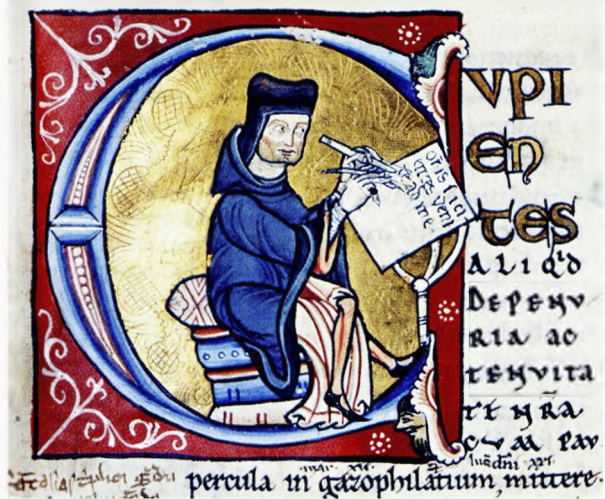 CVPI
EN
TES
ALIQ'D
DEPENV
RIA AC
TENVITA
TE NRA
CVM PAV
percula in gazophilatium, mittere.
entes veni
te ad me